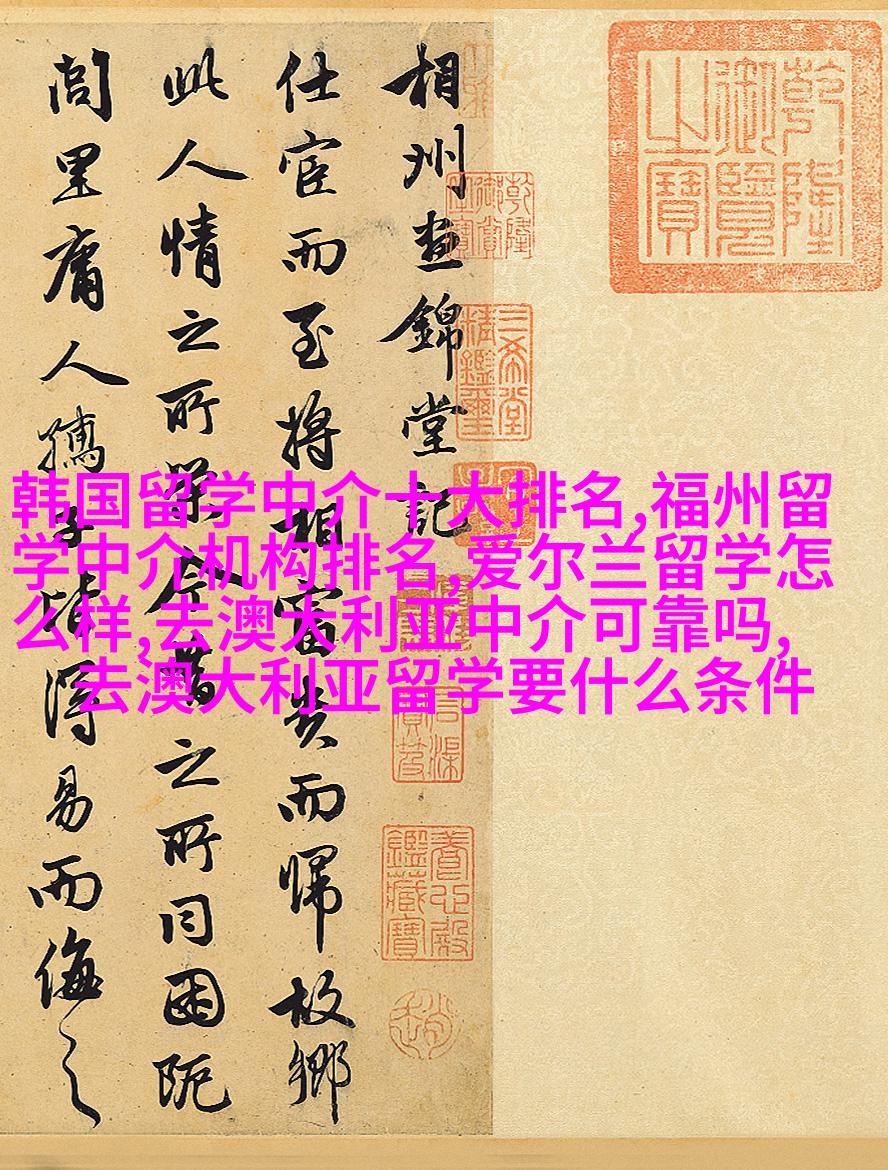 乾隆御覽之寶
三希堂精鑑璽
養心殿鑑藏寶
相州晝錦堂記
仕宦而至將相富貴而歸故鄉
此人情之所榮今昔之所同困阨
閭里庸人孺子皆得易而侮之
韩国留学中介十大排名,福州留
学中介机构排名,爱尔兰留学怎
么样,去澳大利亚中介可靠吗,
去澳大利亚留学要什么条件